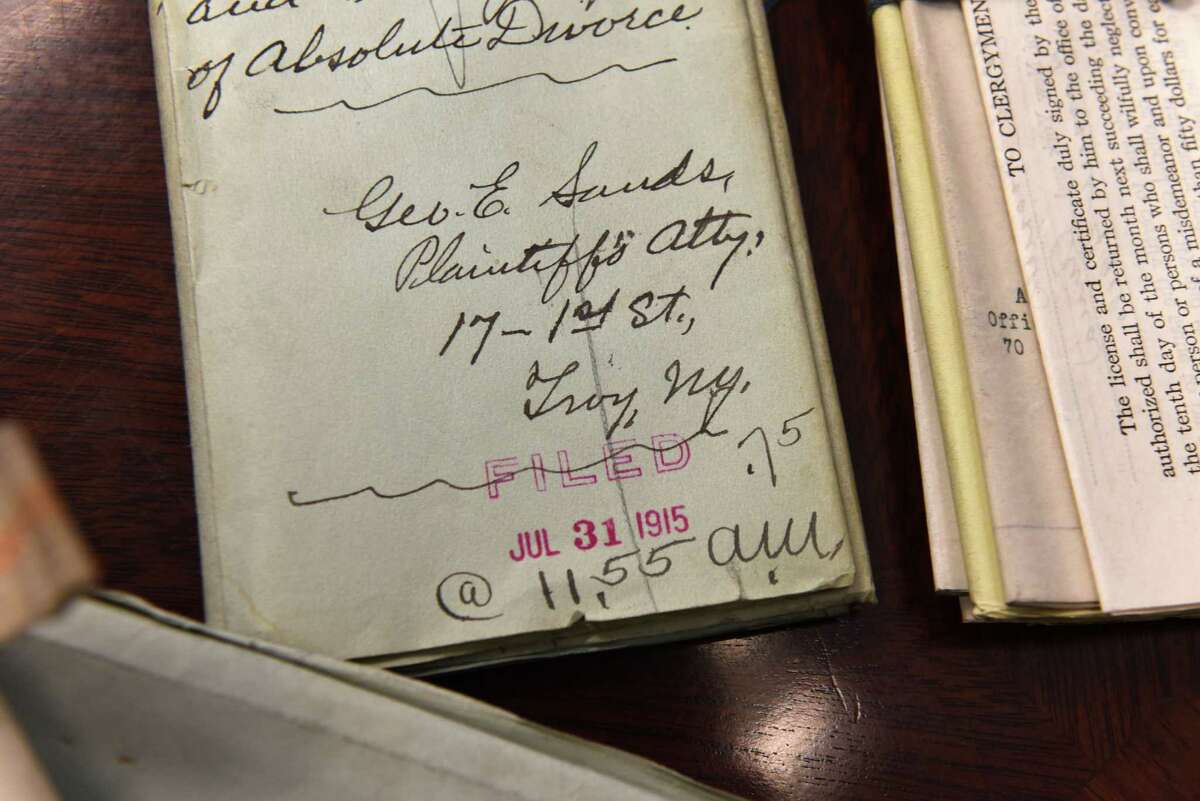 and
of Absolute Divorce.
Geo. E. Sands,
Plaintiff's Atty.
17-1st St.,
Troy, Ny.
.75
FILED
JUL 31 1915
@ 11,55 AM,
TO CLERGYMEN
The license and certificate duly signed by the
authorized shall be returned by him to the office of
the tenth day of the month next succeeding the da
person or persons who shall wilfully neglect
of a misdemeanor and upon conv
fifty dollars for e
A
Offi
70